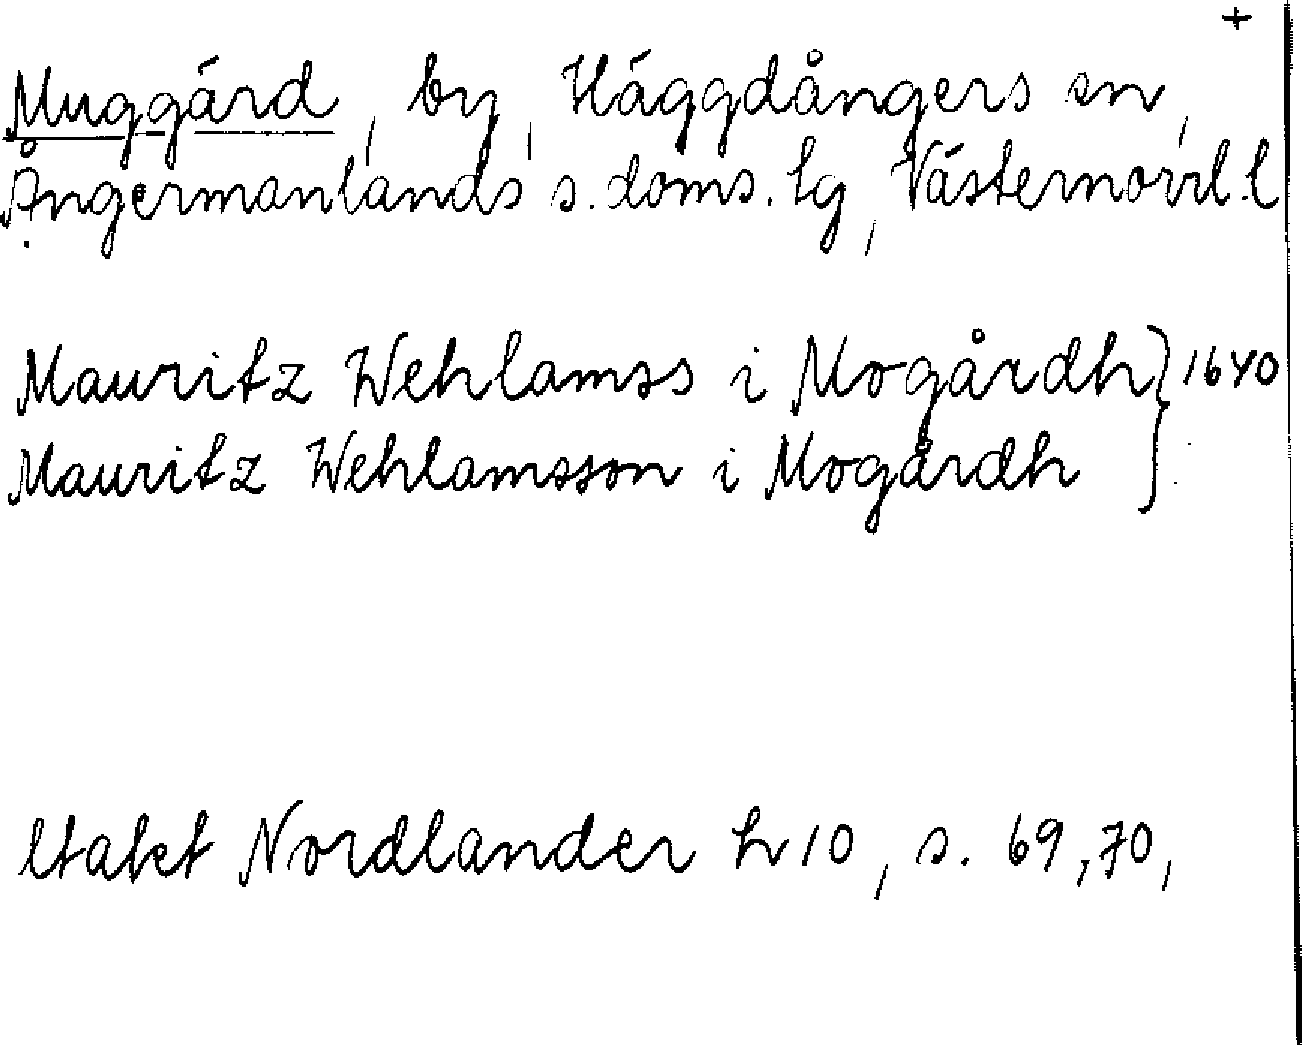 +
Muggård, by, Häggdångers sn,
Ångermanlands s. doms. tg, Västernorrl. l
Mauritz Wehlamss i Mogårdh } 1640
Mauritz Wehlamsson i Mogårdh }
Utakt Nordlander h 10, s. 69, 70,